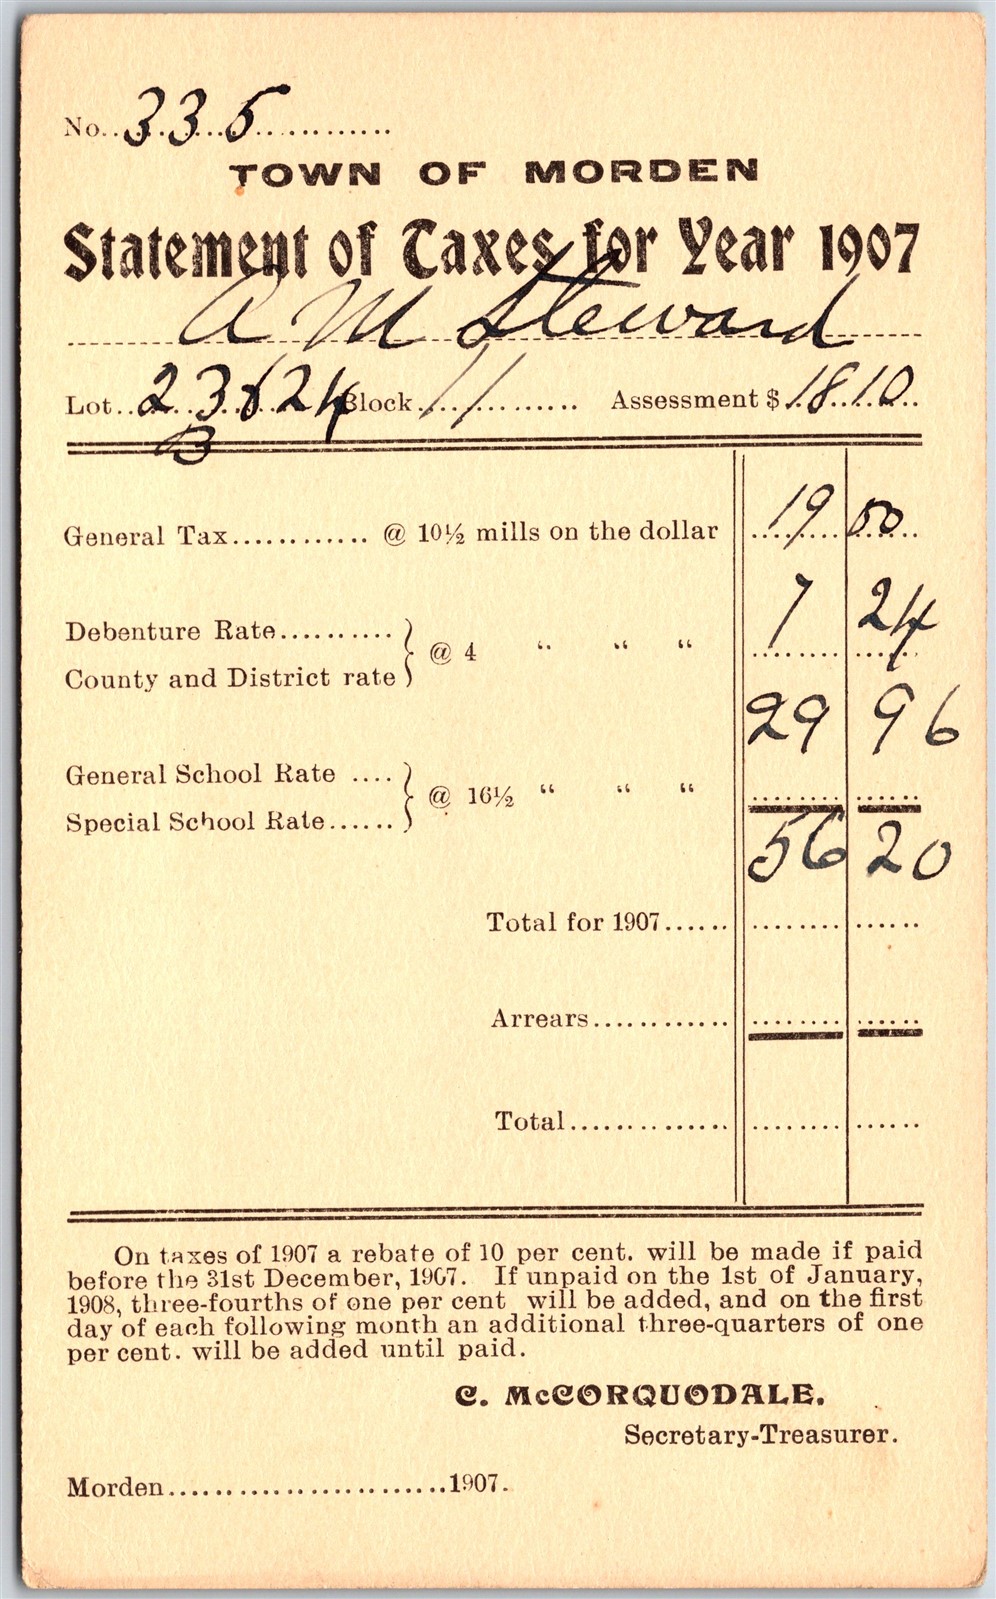 No. 335
TOWN OF MORDEN
Statement of Taxes for Year 1907
A M Steward
Lot 23 & 24 Block 11 Assessment $ 1810
B
General Tax............ @ 10½ mills on the dollar 19 00
Debenture Rate.......... } @ 4 " " " 7 24
County and District rate
29 96
General School Rate .... } @ 16½ " " "
Special School Rate......
56 20
Total for 1907......
Arrears............
Total..............
On taxes of 1907 a rebate of 10 per cent. will be made if paid
before the 31st December, 1907. If unpaid on the 1st of January,
1908, three-fourths of one per cent will be added, and on the first
day of each following month an additional three-quarters of one
per cent. will be added until paid.
C. McCORQUODALE.
Secretary-Treasurer.
Morden........................1907.